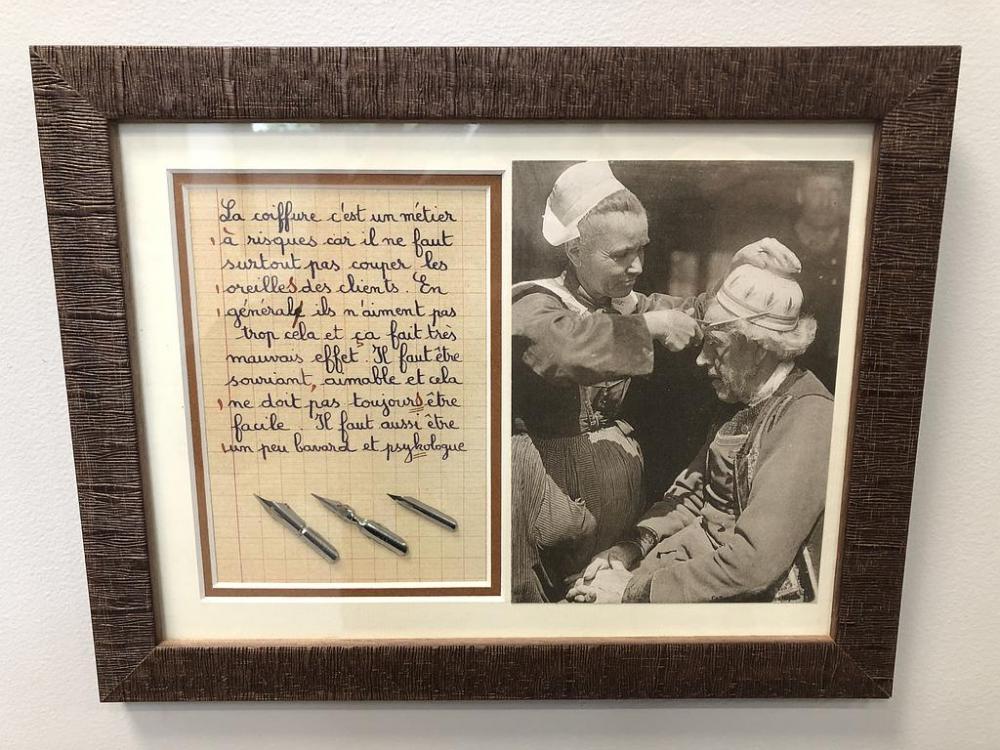 La coiffure c'est un métier
à risques car il ne faut
surtout pas couper les
oreilles des clients. En
général, ils n'aiment pas
trop cela et ça fait très
mauvais effet. Il faut être
souriant, aimable et cela
ne doit pas toujours être
facile. Il faut aussi être
un peu bavard et psykologue